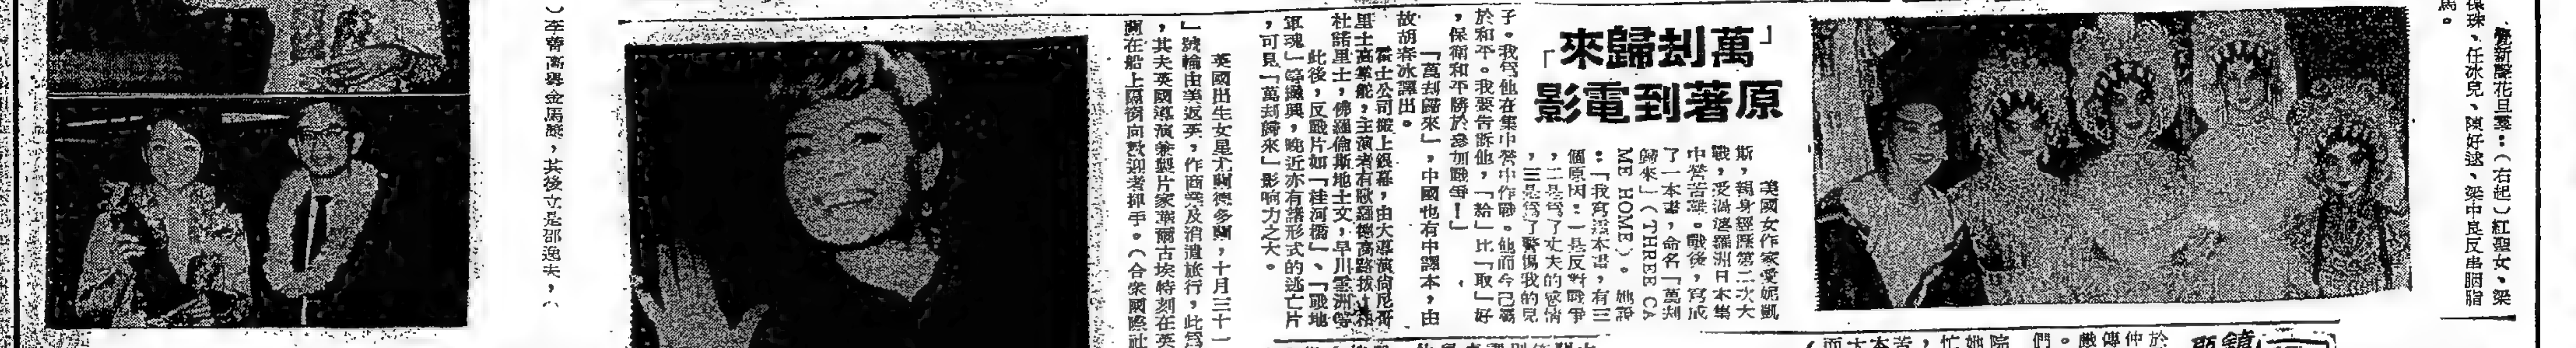 新聲花旦羣：（右起）紅聖女、梁
珠、任冰兒、陳好逑、梁中良反串胭脂
馬。
「萬刦歸來」
原著到電影
美國女作家愛妮凱
斯，親身經歷第二次大
戰，受過婆羅洲日本集
中營苦難。戰後，寫成
了一本書，命名「萬刦
歸來」（THREE CA
ME HOME）。她說
：「我寫這本書，有三
個原因：一是反對戰爭
，二是為了丈夫的感情
，三是為了警惕我的兒
子。我為他在集中營中作戰。他而今已屬
於和平。我要告訴他，「給」比「取」好
，保衛和平勝於參加戰爭！」
「萬刦歸來」，中國也有中譯本，由
故胡春冰譯出。
霍士公司搬上銀幕，由大導演尚尼哥
里士高掌舵，主演者有歌羅德高路拔、柏
杜諾里士，佛羅倫斯地士文，早川雪洲等
此後，反戰片如「桂河橋」、「戰地
軍魂」等攝製，晚近亦有諸形式的逃亡片
，可見「萬刦歸來」影响力之大。
英國出生女星尤蘭德多蘭，十月三十一
」號輪由美返英，作商業及消遣旅行，此為
，其夫英國導演兼製片家華爾古埃特刻在英
蘭在船上隔窗向歡迎者揮手。（合衆國際社
）李菁高舉金馬獎，其後立是邵逸夫，（